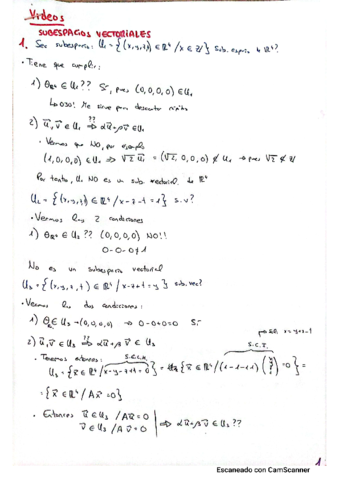 Videos
SUBESPACIOS VECTORIALES
1. Ser subespacio: U₁ = {(x,y,z,t) ∈ ℝ⁴ / x ∈ ℤ} Sub. espacio de ℝ⁴?
• Tiene que cumplir:
1) 0ℝ⁴ ∈ U₁?? Sí, pues (0,0,0,0) ∈ U₁
Me sirve para descartar rápido
2) u⃗, v⃗ ∈ U₁ ⇒?? αu⃗ + βv⃗ ∈ U₁
• Vemos que NO, por ejemplo
(1,0,0,0) ∈ U₁ ⇒ √2 u⃗₁ = (√2, 0, 0, 0) ∉ U₁ → pues √2 ∉ ℤ
Por tanto, U₁ NO es un sub. vectorial de ℝ⁴
U₂ = {(x,y,z,t) ∈ ℝ⁴ / x-z-t = 1} s.v?
• Veamos las 2 condiciones
1) 0ℝ⁴ ∈ U₂?? (0,0,0,0) NO!!
0-0-0≠1
No es un subespacio vectorial
U₃ = {(x,y,z,t) ∈ ℝ⁴ / x-z+t = y} sub. vec?
• Veamos las dos condiciones:
1) 0 ∈ U₃ → (0,0,0,0) → 0-0+0=0 Sí
2) u⃗, v⃗ ∈ U₃ ⇒?? αu⃗ + βv⃗ ∈ U₃
• Tenemos entonces:
U₃ = {x⃗ ∈ ℝ⁴ / x-y-z+t = 0} = {x⃗ ∈ ℝ⁴ / (1 -1 -1 1) (x y z t) = 0} =
= {x⃗ ∈ ℝ⁴ / Ax⃗ = 0}
• Entonces u⃗ ∈ U₃ / Au⃗ = 0
v⃗ ∈ U₃ / Av⃗ = 0 ⇒ αu⃗ + βv⃗ ∈ U₃??
1
Escaneado con CamScanner